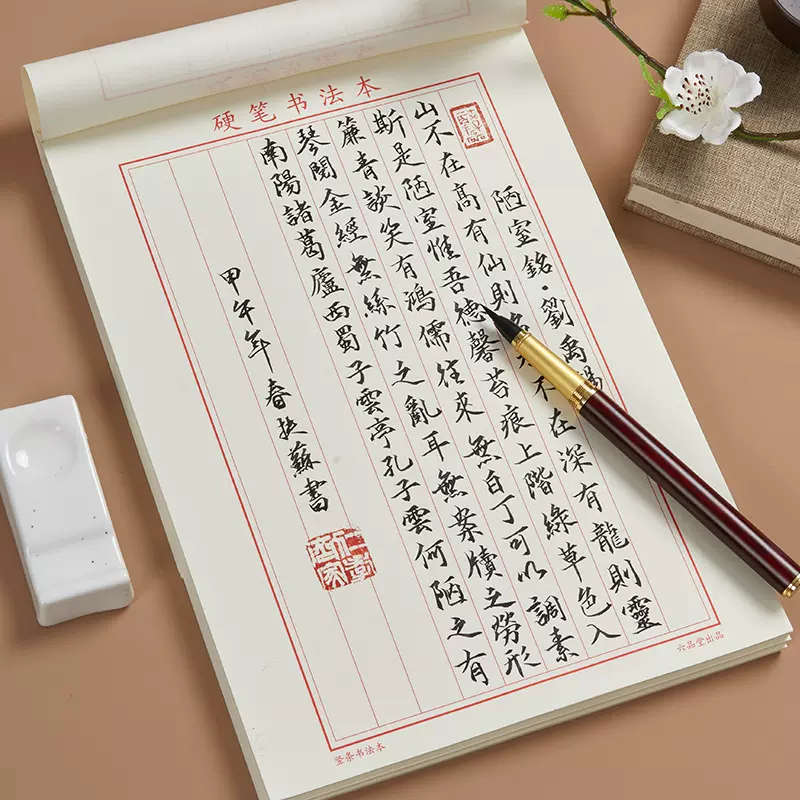 硬笔书法本
陋室銘·劉禹錫
山不在高有仙則不在深有龍則靈
斯是陋室惟吾德馨苔痕上階綠草色入
簾青談笑有鴻儒往來無白丁可以調素
琴閱金經無絲竹之亂耳無案牘之勞形
南陽諸葛廬西蜀子雲亭孔子雲何陋之有
甲午年春扶蘇書
竖条书法本
六品堂出品